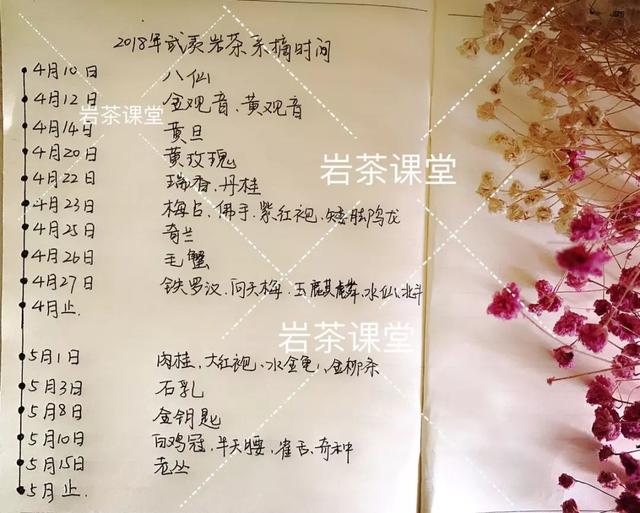 2018年武夷岩茶采摘时间
4月10日 八仙
4月12日 金观音、黄观音
岩茶课堂
4月14日 黄旦
4月20日 黄玫瑰
岩茶课堂
4月22日 瑞香、丹桂
4月23日 梅占、佛手、紫红袍、矮脚乌龙
4月25日 奇兰
4月26日 毛蟹
4月27日 铁罗汉、向天梅、玉麒麟、水仙、北斗
4月止.
岩茶课堂
5月1日 肉桂、大红袍、水金龟、金柳条
5月3日 石乳
5月8日 金钥匙
5月10日 白鸡冠、半天腰、雀舌、奇种
5月15日 老丛
5月止.
岩茶课堂